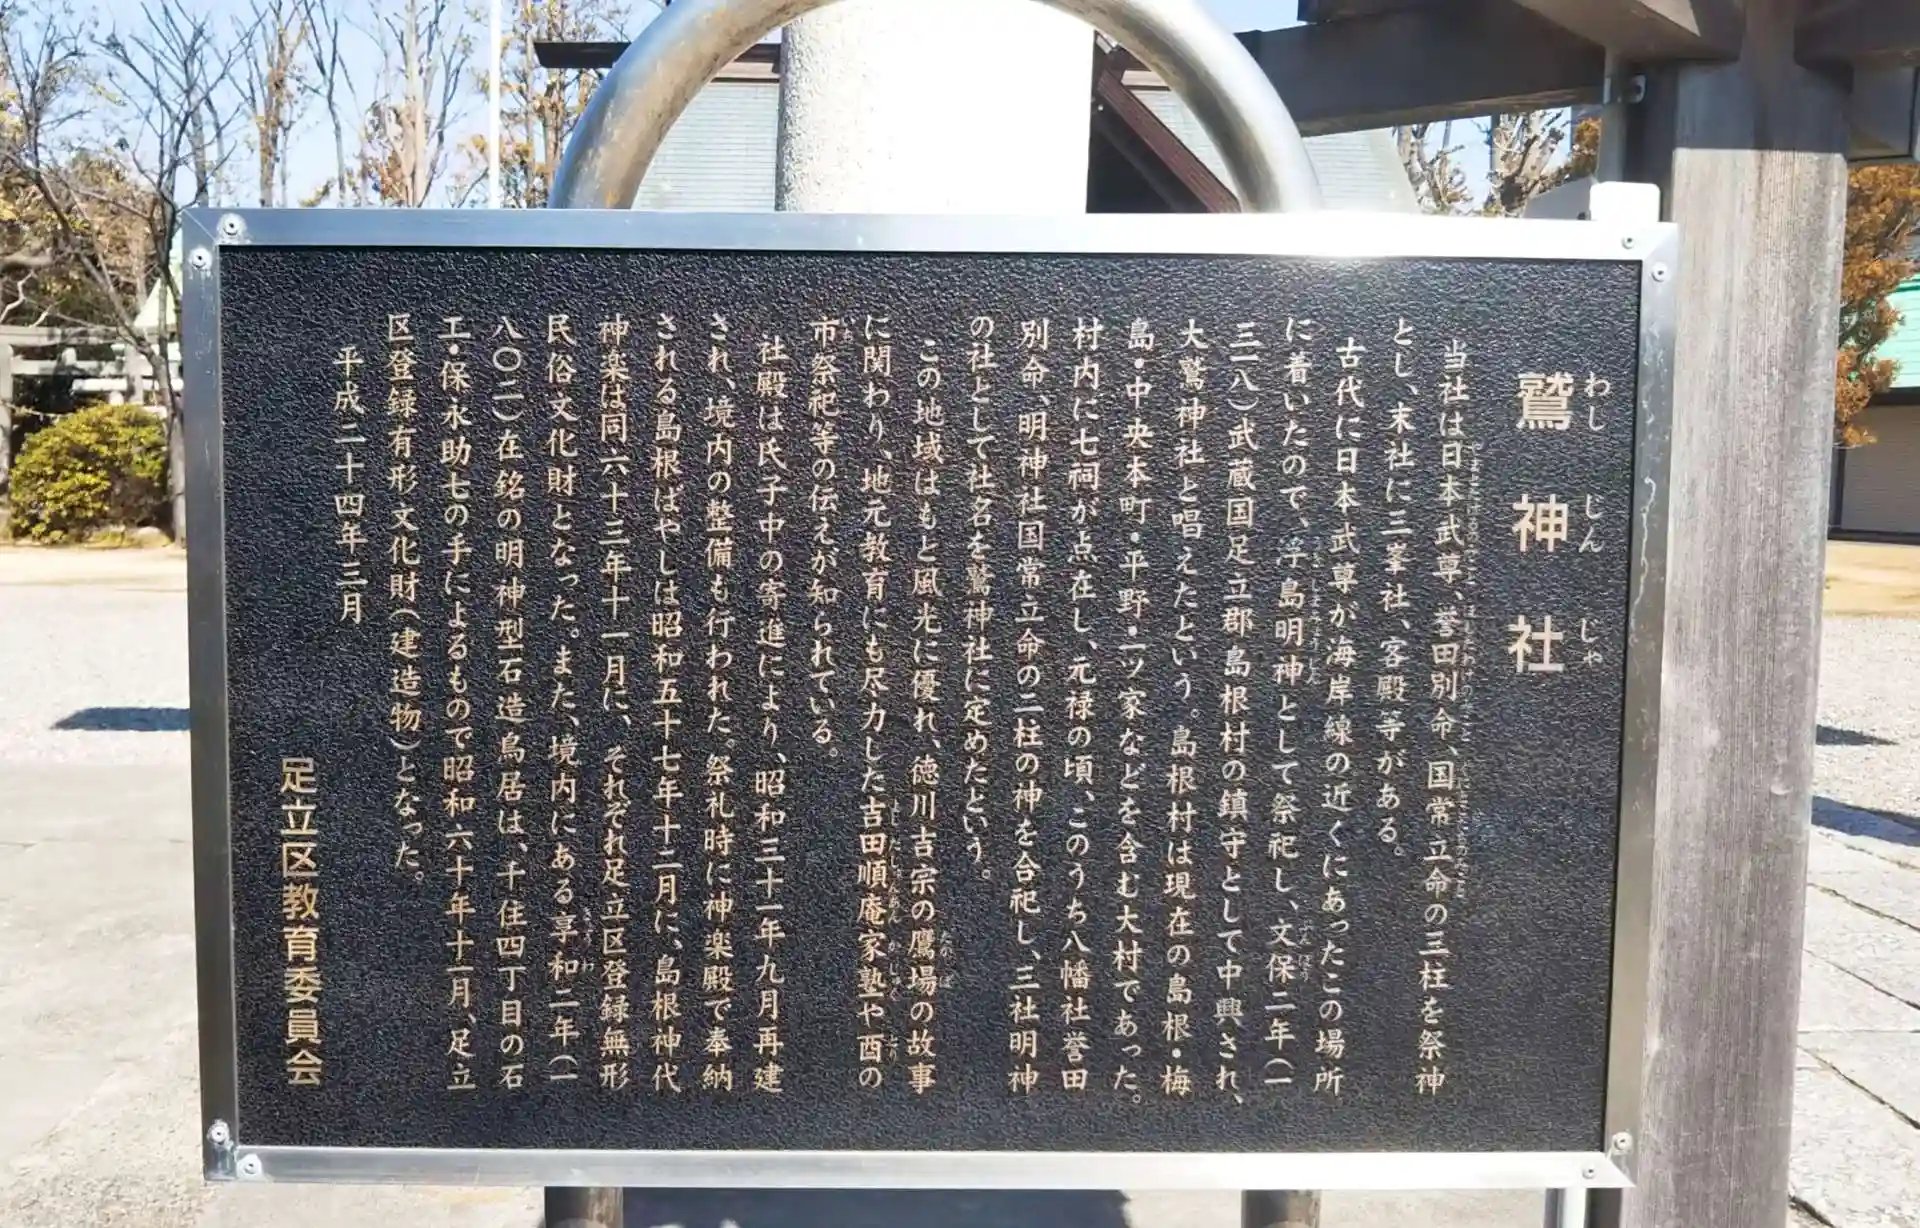 鷲神社
わし じん じゃ
当社は日本武尊、誉田別命、国常立命の三柱を祭神
とし、末社に三峯社、客殿等がある。
古代に日本武尊が海岸線の近くにあったこの場所
に着いたので、浮島明神として祭祀し、文保二年(一
三一八)武蔵国足立郡島根村の鎮守として中興され、
大鷲神社と唱えたという。島根村は現在の島根・梅
島・中央本町・平野・一ツ家などを含む大村であった。
村内に七祠が点在し、元禄の頃、このうち八幡社誉田
別命、明神社国常立命の二柱の神を合祀し、三社明神
の社として社名を鷲神社に定めたという。
この地域はもと風光に優れ、徳川吉宗の鷹場の故事
に関わり、地元教育にも尽力した吉田順庵家塾や酉の
市祭祀等の伝えが知られている。
社殿は氏子中の寄進により、昭和三十一年九月再建
され、境内の整備も行われた。祭礼時に神楽殿で奉納
される島根ばやしは昭和五十七年十二月に、島根神代
神楽は同六十三年十一月に、それぞれ足立区登録無形
民俗文化財となった。また、境内にある享和二年(一
八〇二)在銘の明神型石造鳥居は、千住四丁目の石
工・保永助七の手によるもので昭和六十年十一月、足立
区登録有形文化財(建造物)となった。
平成二十四年三月
足立区教育委員会